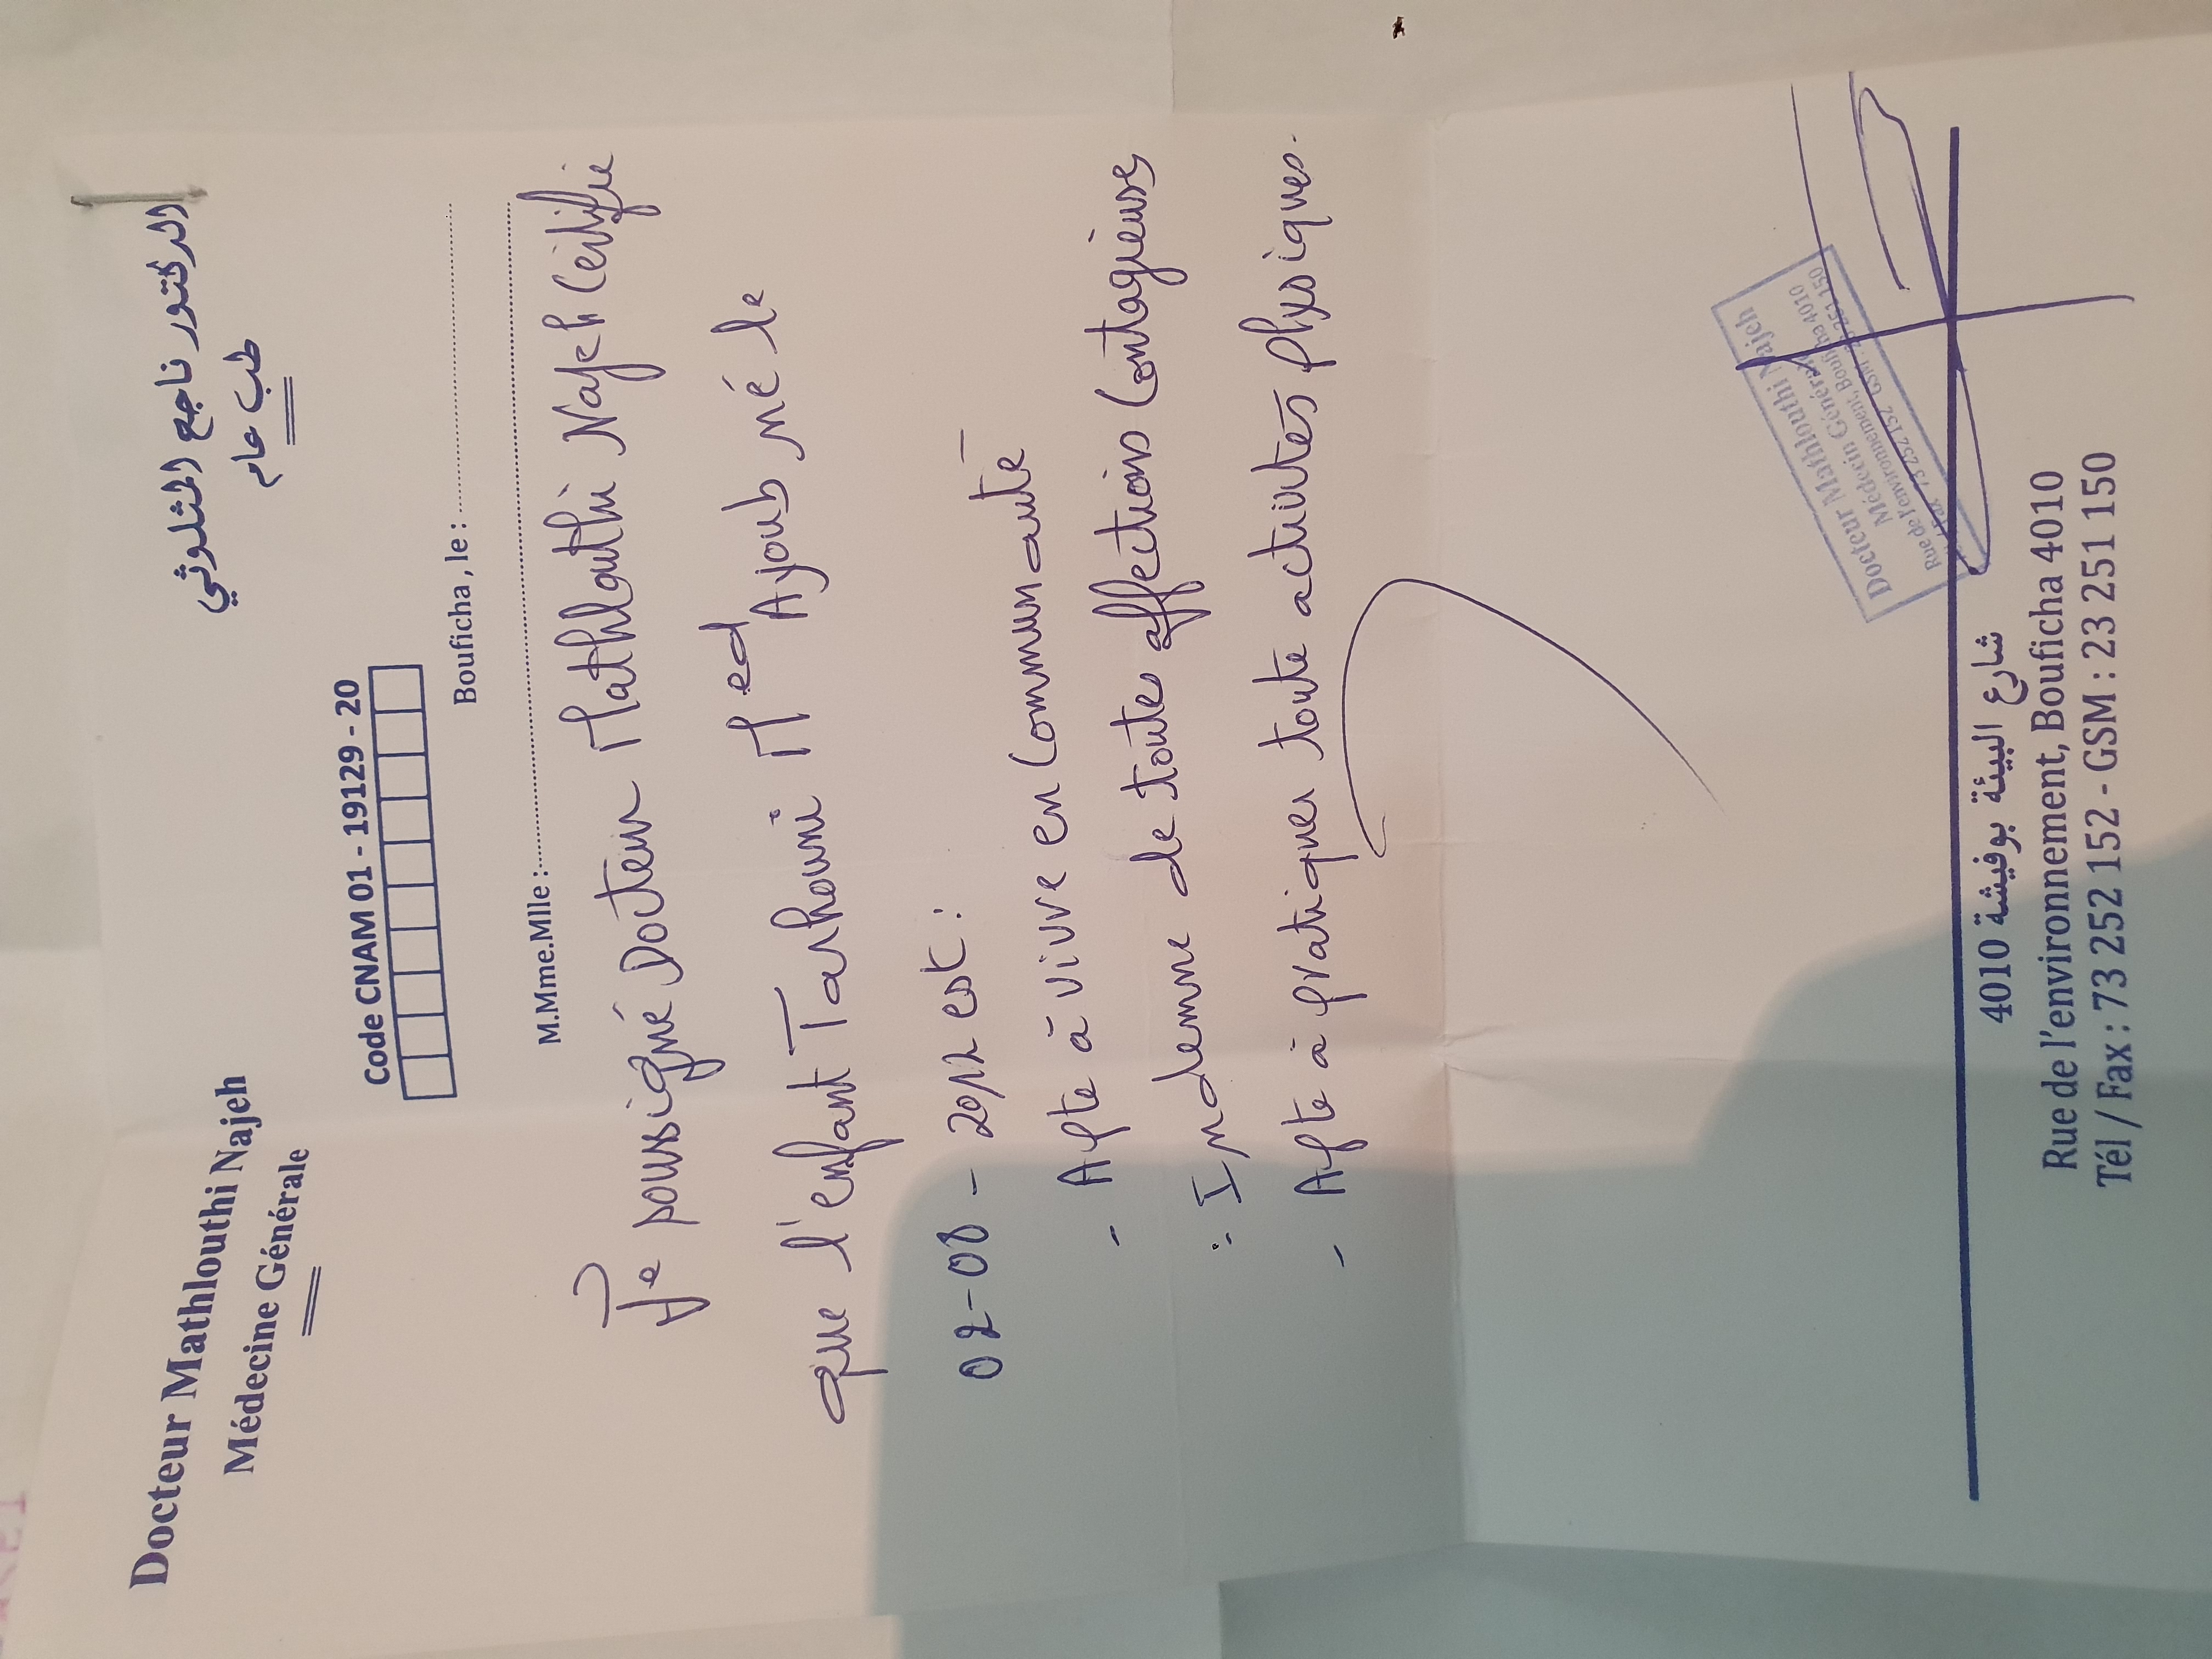 Docteur Mathlouthi Najeh
Médecine Générale
الدكتور ناجح المثلوثي
طب عام
Code CNAM 01 - 19129 - 20
Bouficha, le :
M.Mme.Mlle :
Je soussigné Docteur Mathlouthi Najeh Certifie
que l'enfant Tarhouni Med Ayoub né le
02-08-2012 est :
- Apte à vivre en Communauté
- Indemne de toutes affections Contagieuses
- Apte à pratiquer toute activités physiques.
Docteur Mathlouthi Najeh
Médecin Générale
Rue de l'environnement, Bouficha 4010
Tél/Fax 73 252 152 GSM : 23 251 150
شارع البيئة بوفيشة 4010
Rue de l'environnement, Bouficha 4010
Tél / Fax : 73 252 152 - GSM : 23 251 150